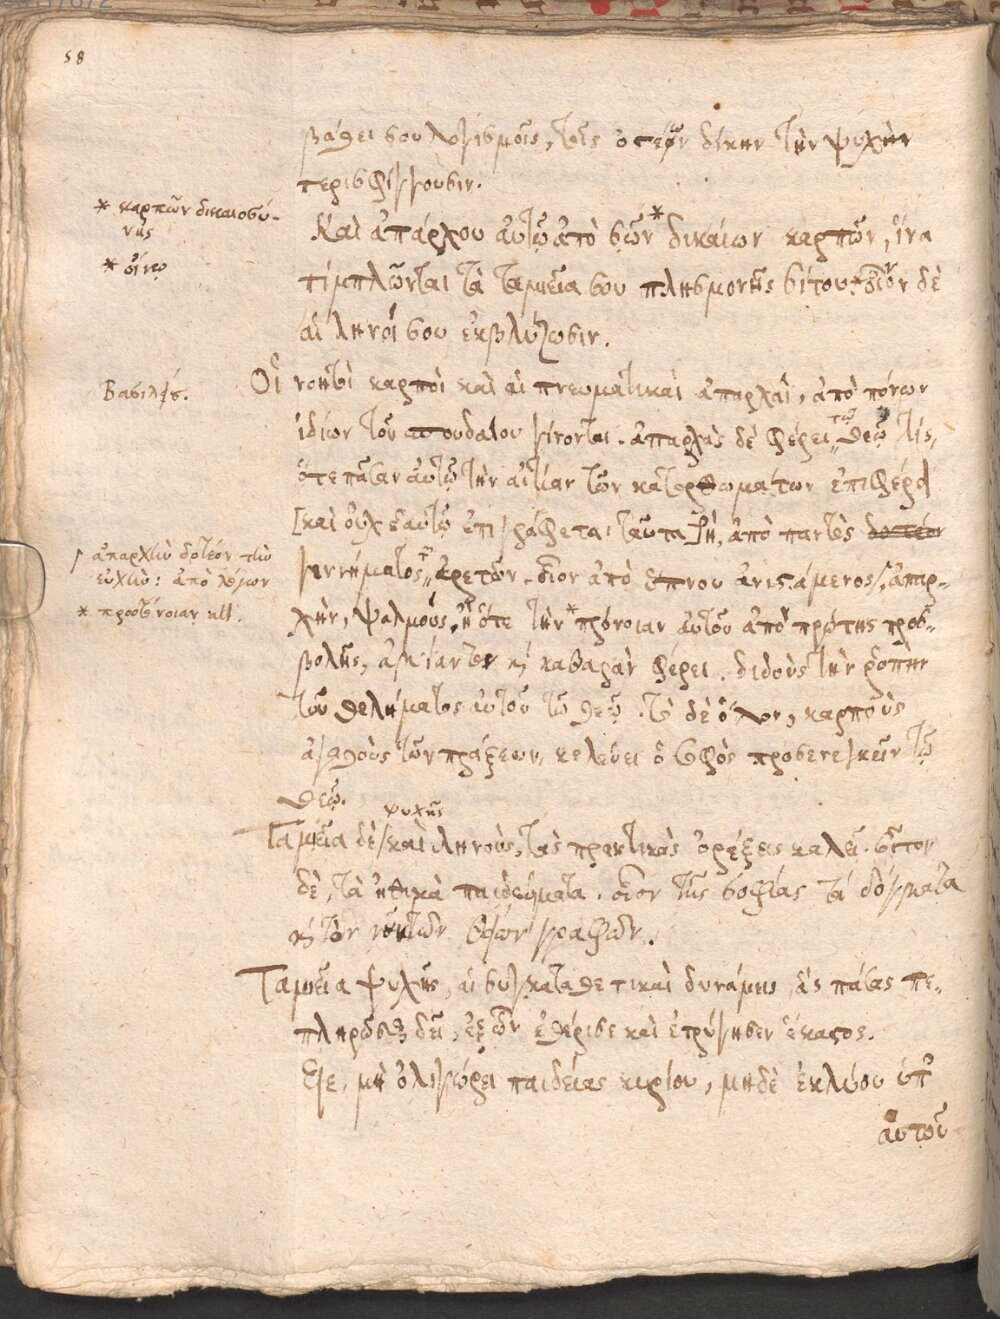 58
βάθει σου λογισμοῖς, τοῖς ὀστέων δίκην τὴν ψυχὴν
περισφίγγουσιν.
* καρπῶν δικαιοσύ-
νης
* οἴνῳ
Καὶ ἀπάρχου αὐτῷ ἀπὸ σῶν * δικαίων καρπῶν, ἵνα
πίμπλωνται τὰ ταμεῖα σου πλησμονῆς σίτου * οἶνον δὲ
αἱ ληνοί σου ἐκβλύζωσιν.
Βασιλείου.
Οἱ νοητοὶ καρποὶ καὶ αἱ πνευματικαὶ ἀπαρχαὶ, ἀπὸ πόνων
ἰδίων τοῦ σπουδαίου γίνονται. ἀπαρχὰς δὲ φέρει τῷ θεῷ τίς,
ὅτε πᾶσαν αὐτῷ τὴν αἰτίαν τῶν κατορθωμάτων ἐπιφέρει
[καὶ οὐχ ἑαυτῷ ἐπιγράφεται ταῦτα] ἢ, ἀπὸ παντὸς δοτέον
/ ἀπαρχὴν δοτέον τὴν
εὐχὴν: ἀπὸ λόγων
* προσένοιαν
γεννήματος ἀρετῶν. οἷον ἀπὸ ὕπνου ἀνιστάμενος / ἀπαρ-
χὴν, ψαλμοὺς, ἢ ὅτε τὴν * πρόνοιαν αὐτοῦ ἀπὸ πρώτης προσ-
βολῆς, ἀμίαντον καὶ καθαρὰν φέρει. διδοὺς τὴν ῥοπὴν
τοῦ θελήματος αὐτοῦ τῷ θεῷ. τὸ δὲ ὅλον, καρποὺς
ἀγαθοὺς τῶν πράξεων, κελεύει ὁ σοφὸς προσενεγκεῖν τῷ
θεῷ.
ψυχῆς
Ταμεῖα δὲ / καὶ ληνοὺς, τὰς πρακτικὰς ὀρέξεις καλεῖ. σῖτον
δὲ, τὰ ἠθικὰ παιδεύματα. οἶνον τῆς σοφίας τὰ δόγματα
καὶ τὸν νοητὸν θείων γραφῶν.
Ταμεῖα ψυχῆς, αἱ συγκαταθετικαὶ δυνάμεις, ἃς πάσας πε-
πληρῶσθαι δεῖ, ἐξ ὧν ἐθέρισε καὶ ἐτρύγησεν ἕκαστος.
Υἱέ, μὴ ὀλιγώρει παιδείας κυρίου, μηδὲ ἐκλύου ὑπ'
αὐτοῦ